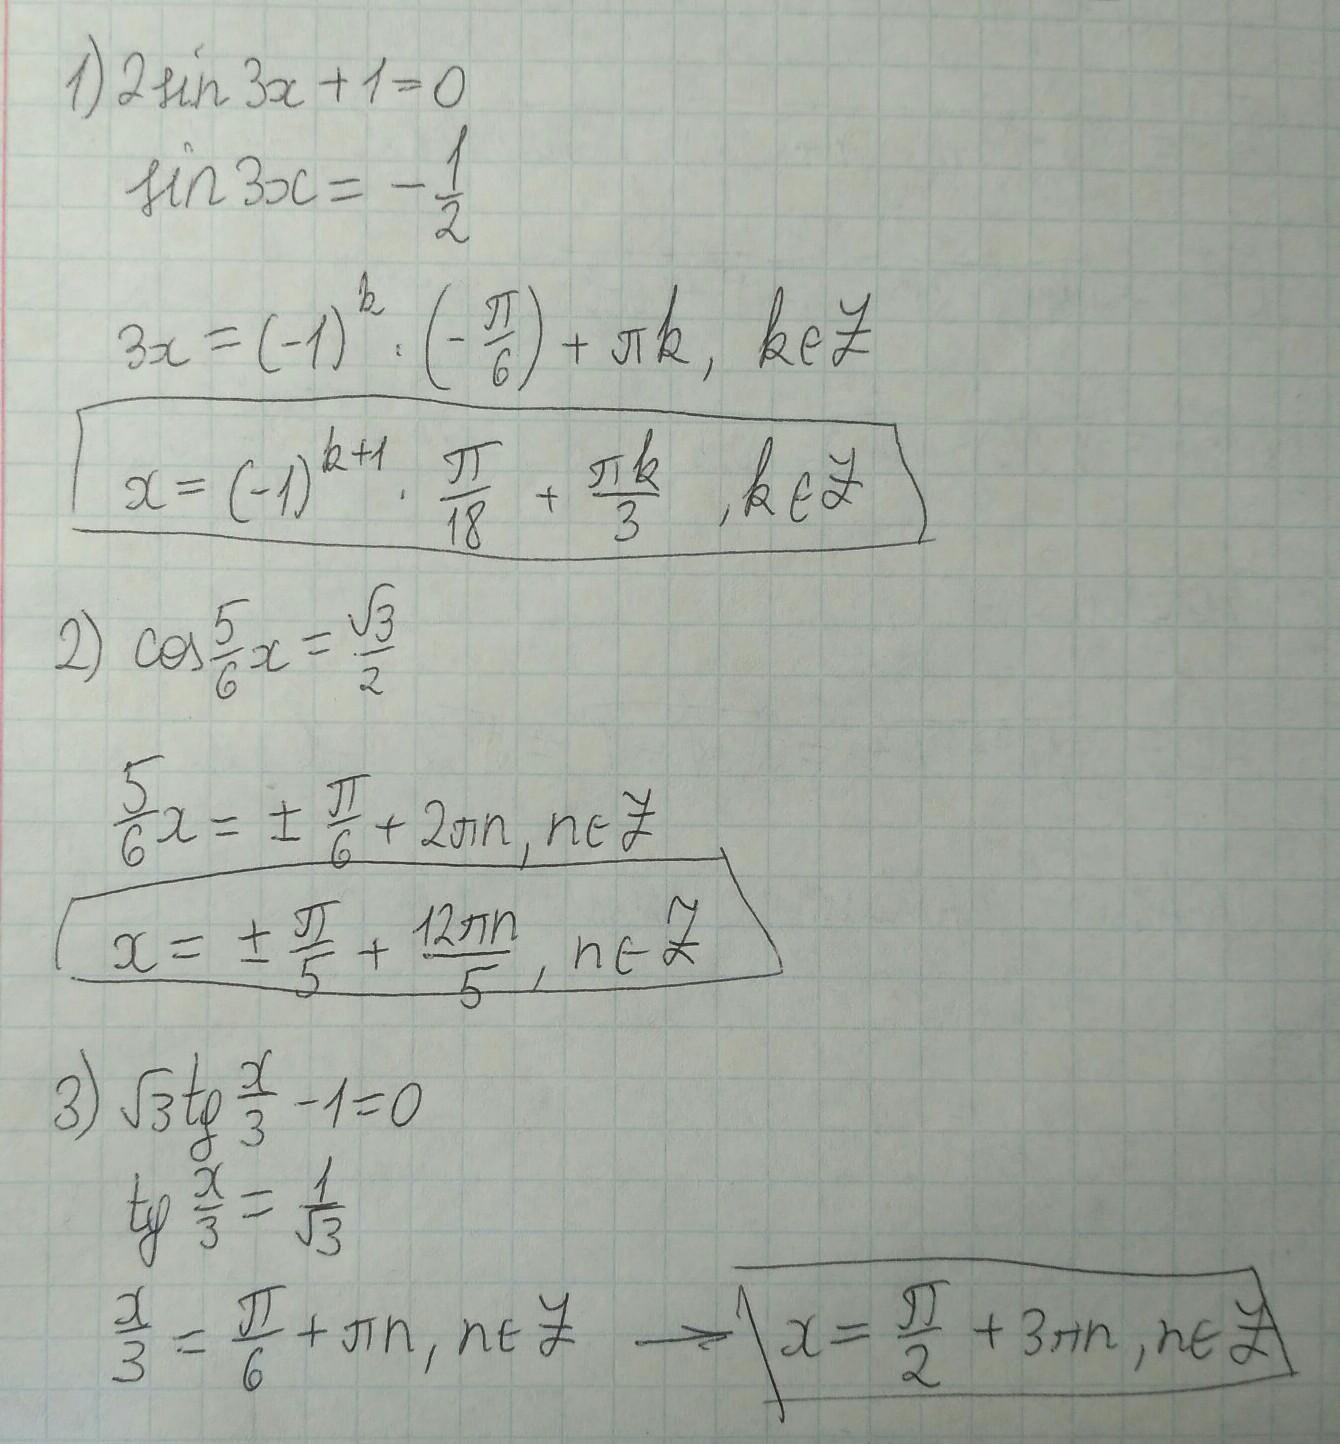 1) 2sin 3x + 1 = 0
sin 3x = -1/2
3x = (-1)^k · (-π/6) + πk, k∈Z
x = (-1)^(k+1) · π/18 + πk/3, k∈Z
2) cos 5/6 x = √3/2
5/6 x = ± π/6 + 2πn, n∈Z
x = ± π/5 + 12πn/5, n∈Z
3) √3 tg x/3 - 1 = 0
tg x/3 = 1/√3
x/3 = π/6 + πn, n∈Z → x = π/2 + 3πn, n∈Z